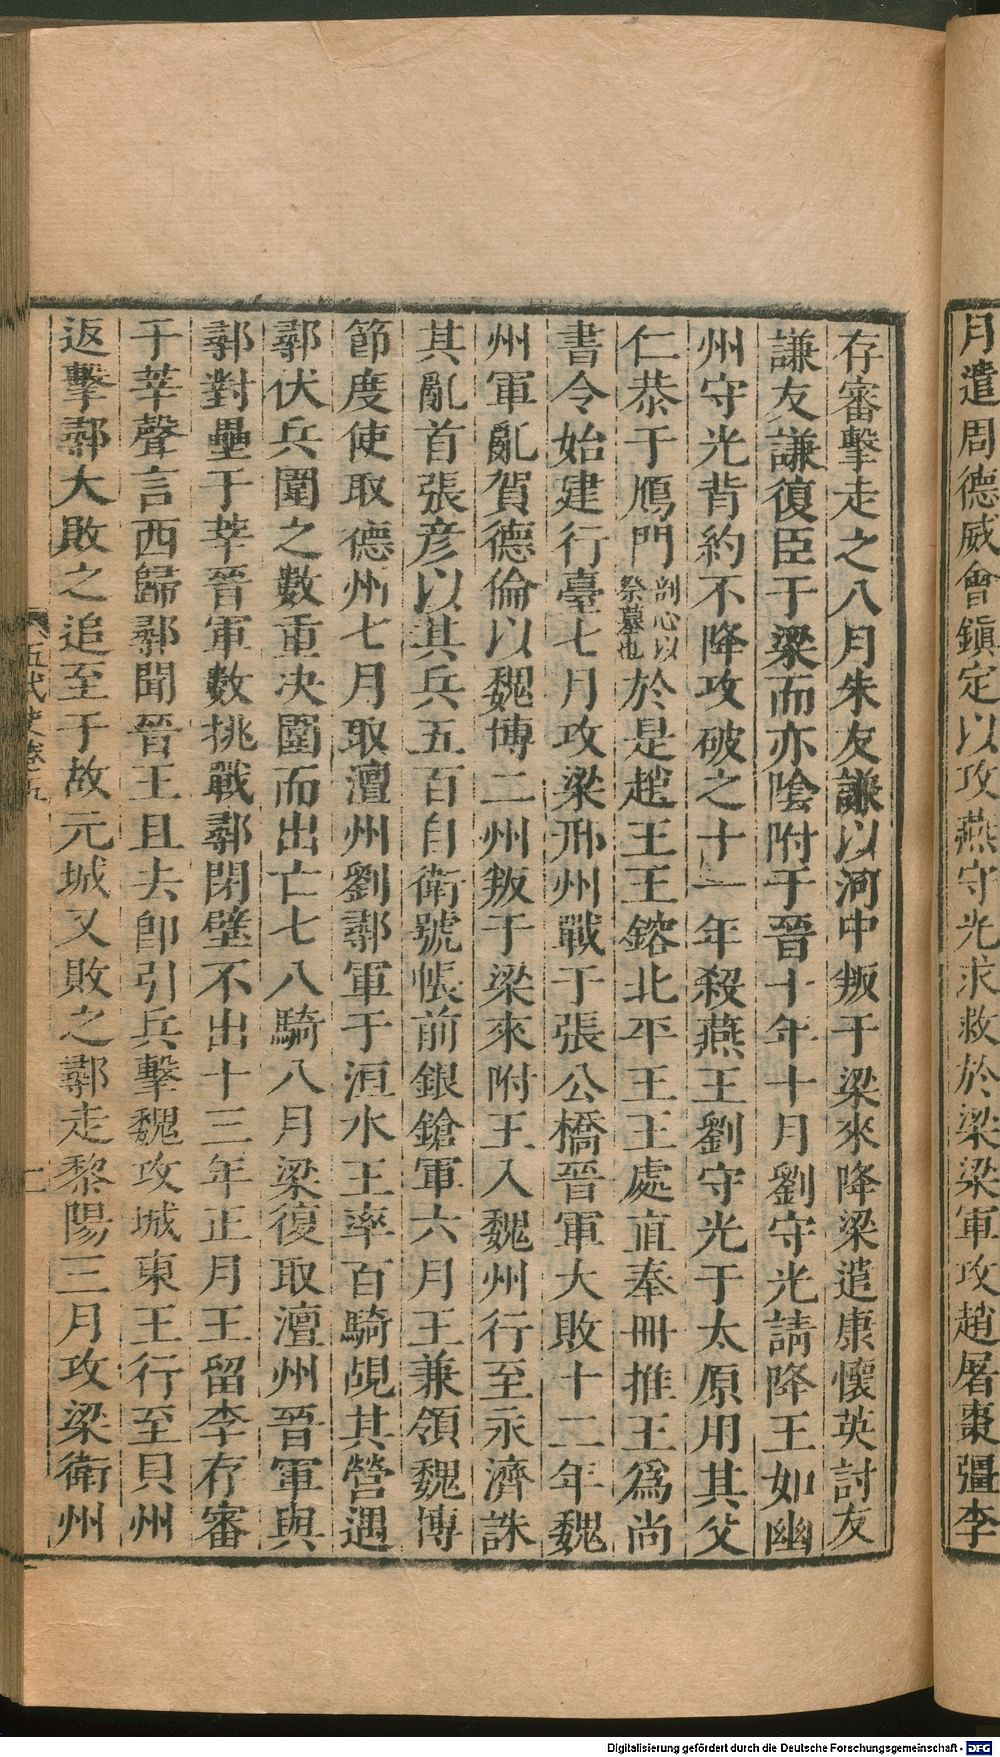 月遣周德威會鎮定以攻燕守光求救於梁梁軍攻趙屠棗彊李
存審擊走之八月朱友謙以河中叛于梁來降梁遣康懷英討友
謙友謙復臣于梁而亦陰附于晉十年十月劉守光請降王如幽
州守光背約不降攻破之十一年殺燕王劉守光于太原用其父
仁恭于鴈門剖心以祭墓也於是趙王王鎔北平王王處直奉冊推王爲尚
書令始建行臺七月攻梁邢州戰于張公橋晉軍大敗十二年魏
州軍亂賀德倫以魏博二州叛于梁來附王入魏州行至永濟誅
其亂首張彥以其兵五百自衛號帳前銀鎗軍六月王兼領魏博
節度使取德州七月取澶州劉鄩軍于洹水王率百騎覘其營遇
鄩伏兵圍之數重决圍而出亡七八騎八月梁復取澶州晉軍與
鄩對壘于莘晉軍數挑戰鄩閉壁不出十三年正月王留李存審
于莘聲言西歸鄩聞晉王且去卽引兵擊魏攻城東王行至貝州
返擊鄩大敗之追至于故元城又敗之鄩走黎陽三月攻梁衛州
五代史卷五
Digitalisierung gefördert durch die Deutsche Forschungsgemeinschaft - DFG